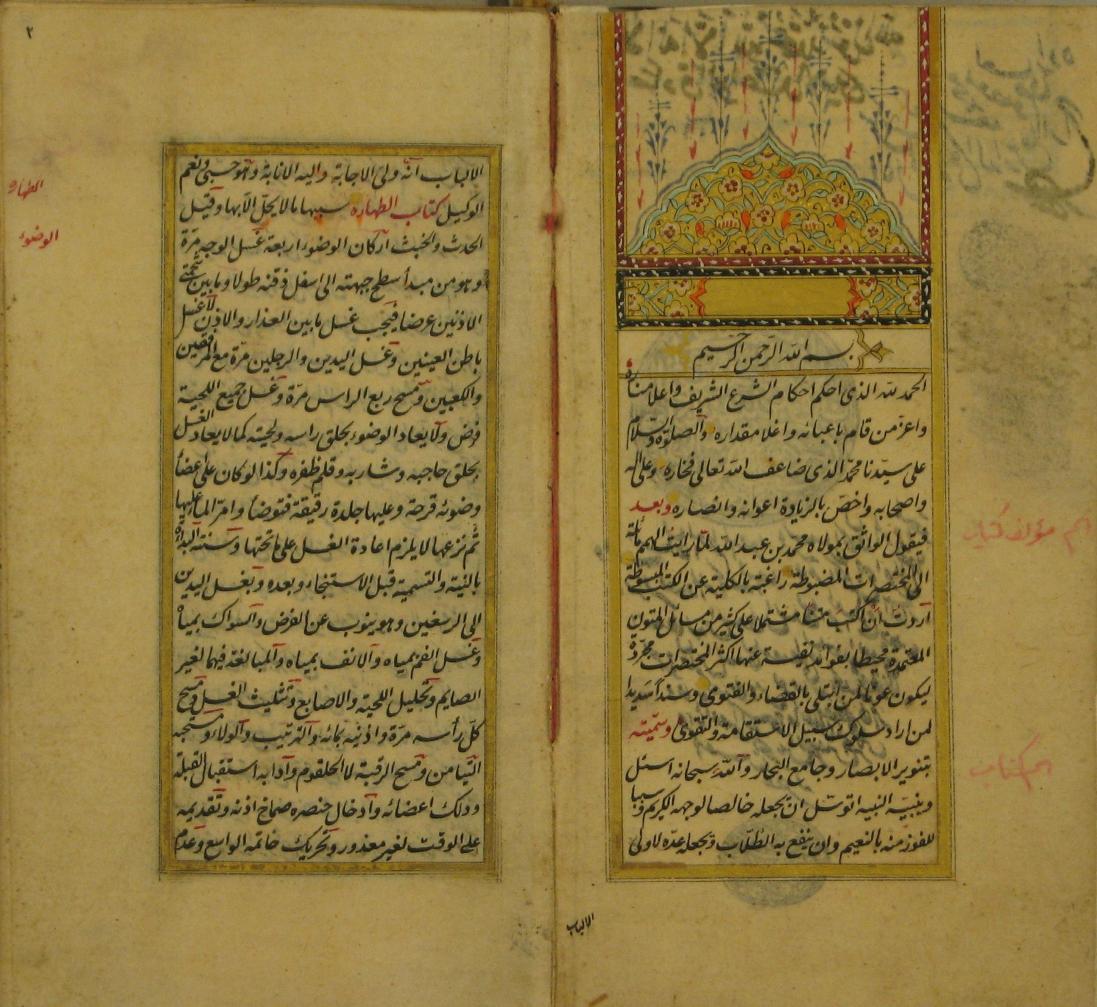 بسم الله الرحمن الرحيم
الحمد لله الذى احكم احكام الشرع الشريف واعلا مناره
واعز من قام باعبائه واغلا مقداره والصلوة والسلام
على سيدنا محمد الذى ضاعف الله تعالى فخاره وعلى اله
واصحابه واخص بالزيادة اعوانه وانصاره وبعد
فيقول الواثق بمولاه محمد بن عبد الله لما رايت الهمم مائلة
الى المختصرات المضبوطة راغبة بالكلية عن الكتب المبسوطة
اردت ان اكتب متنا مشتملا على كثير من مسائل المتون
المعتمدة محيطا بفوائد نفيسة عنها اكثر المختصرات مجردة
ليكون عونا لمن ابتلى بالقضاء والفتوى وسندا سديدا
لمن اراد سلوك سبيل الاستقامة والتقوى وسميته
بتنوير الابصار وجامع البحار والله سبحانه اسئل
وبنبيه النبيه اتوسل ان يجعله خالصا لوجهه الكريم وسببا
للفوز منه بالنعيم وان ينفع به الطلاب ويجعله عدة لاولى
الالباب
اسم مؤلف كتاب
اسم كتاب
٢
الالباب انه ولى الاجابة واليه الانابة وهو حسبى ونعم
الوكيل كتاب الطهاره سببها ما لا يحل الا بها وقيل
الحدث والخبث اركان الوضوء اربعة غسل الوجه مرة
وهو من مبدأ سطح جبهته الى اسفل ذقنه طولا وما بين شحمتى
الاذنين عرضا فيجب غسل ما بين العذار والاذن لا غسل
باطن العينين وغسل اليدين والرجلين مرة مع المرفقين
والكعبين ومسح ربع الراس مرة وغسل جميع اللحية
فرض ولا يعاد الوضوء بحلق راسه ولحيته كما لا يعاد الغسل
بحلق حاجبه وشاربه وقلم ظفره وكذا لو كان على اعضاء
وضوئه قرحة وعليها جلدة رقيقة فتوضأ وامر الماء عليها
ثم نزعها لا يلزم اعادة الغسل على ما تحتها وسننه البداءة
بالنية والتسمية قبل الاستنجاء وبعده وبغسل اليدين
الى الرسغين وهو ينوب عن الفرض والسواك بمياه
وغسل الفم بمياه والانف بمياه والمبالغة فيهما لغير
الصايم وتخليل اللحية والاصابع وتثليث الغسل ومسح
كل رأسه مرة واذنيه بمائه والترتيب والولاء ومستحبه
التيامن ومسح الرقبة لا الحلقوم وادابه استقبال القبلة
ودلك اعضائه وادخال خنصره صماخ اذنه وتقديمه
على الوقت لغير معذور وتحريك خاتمه الواسع وعدم
الطهارة
الوضوء